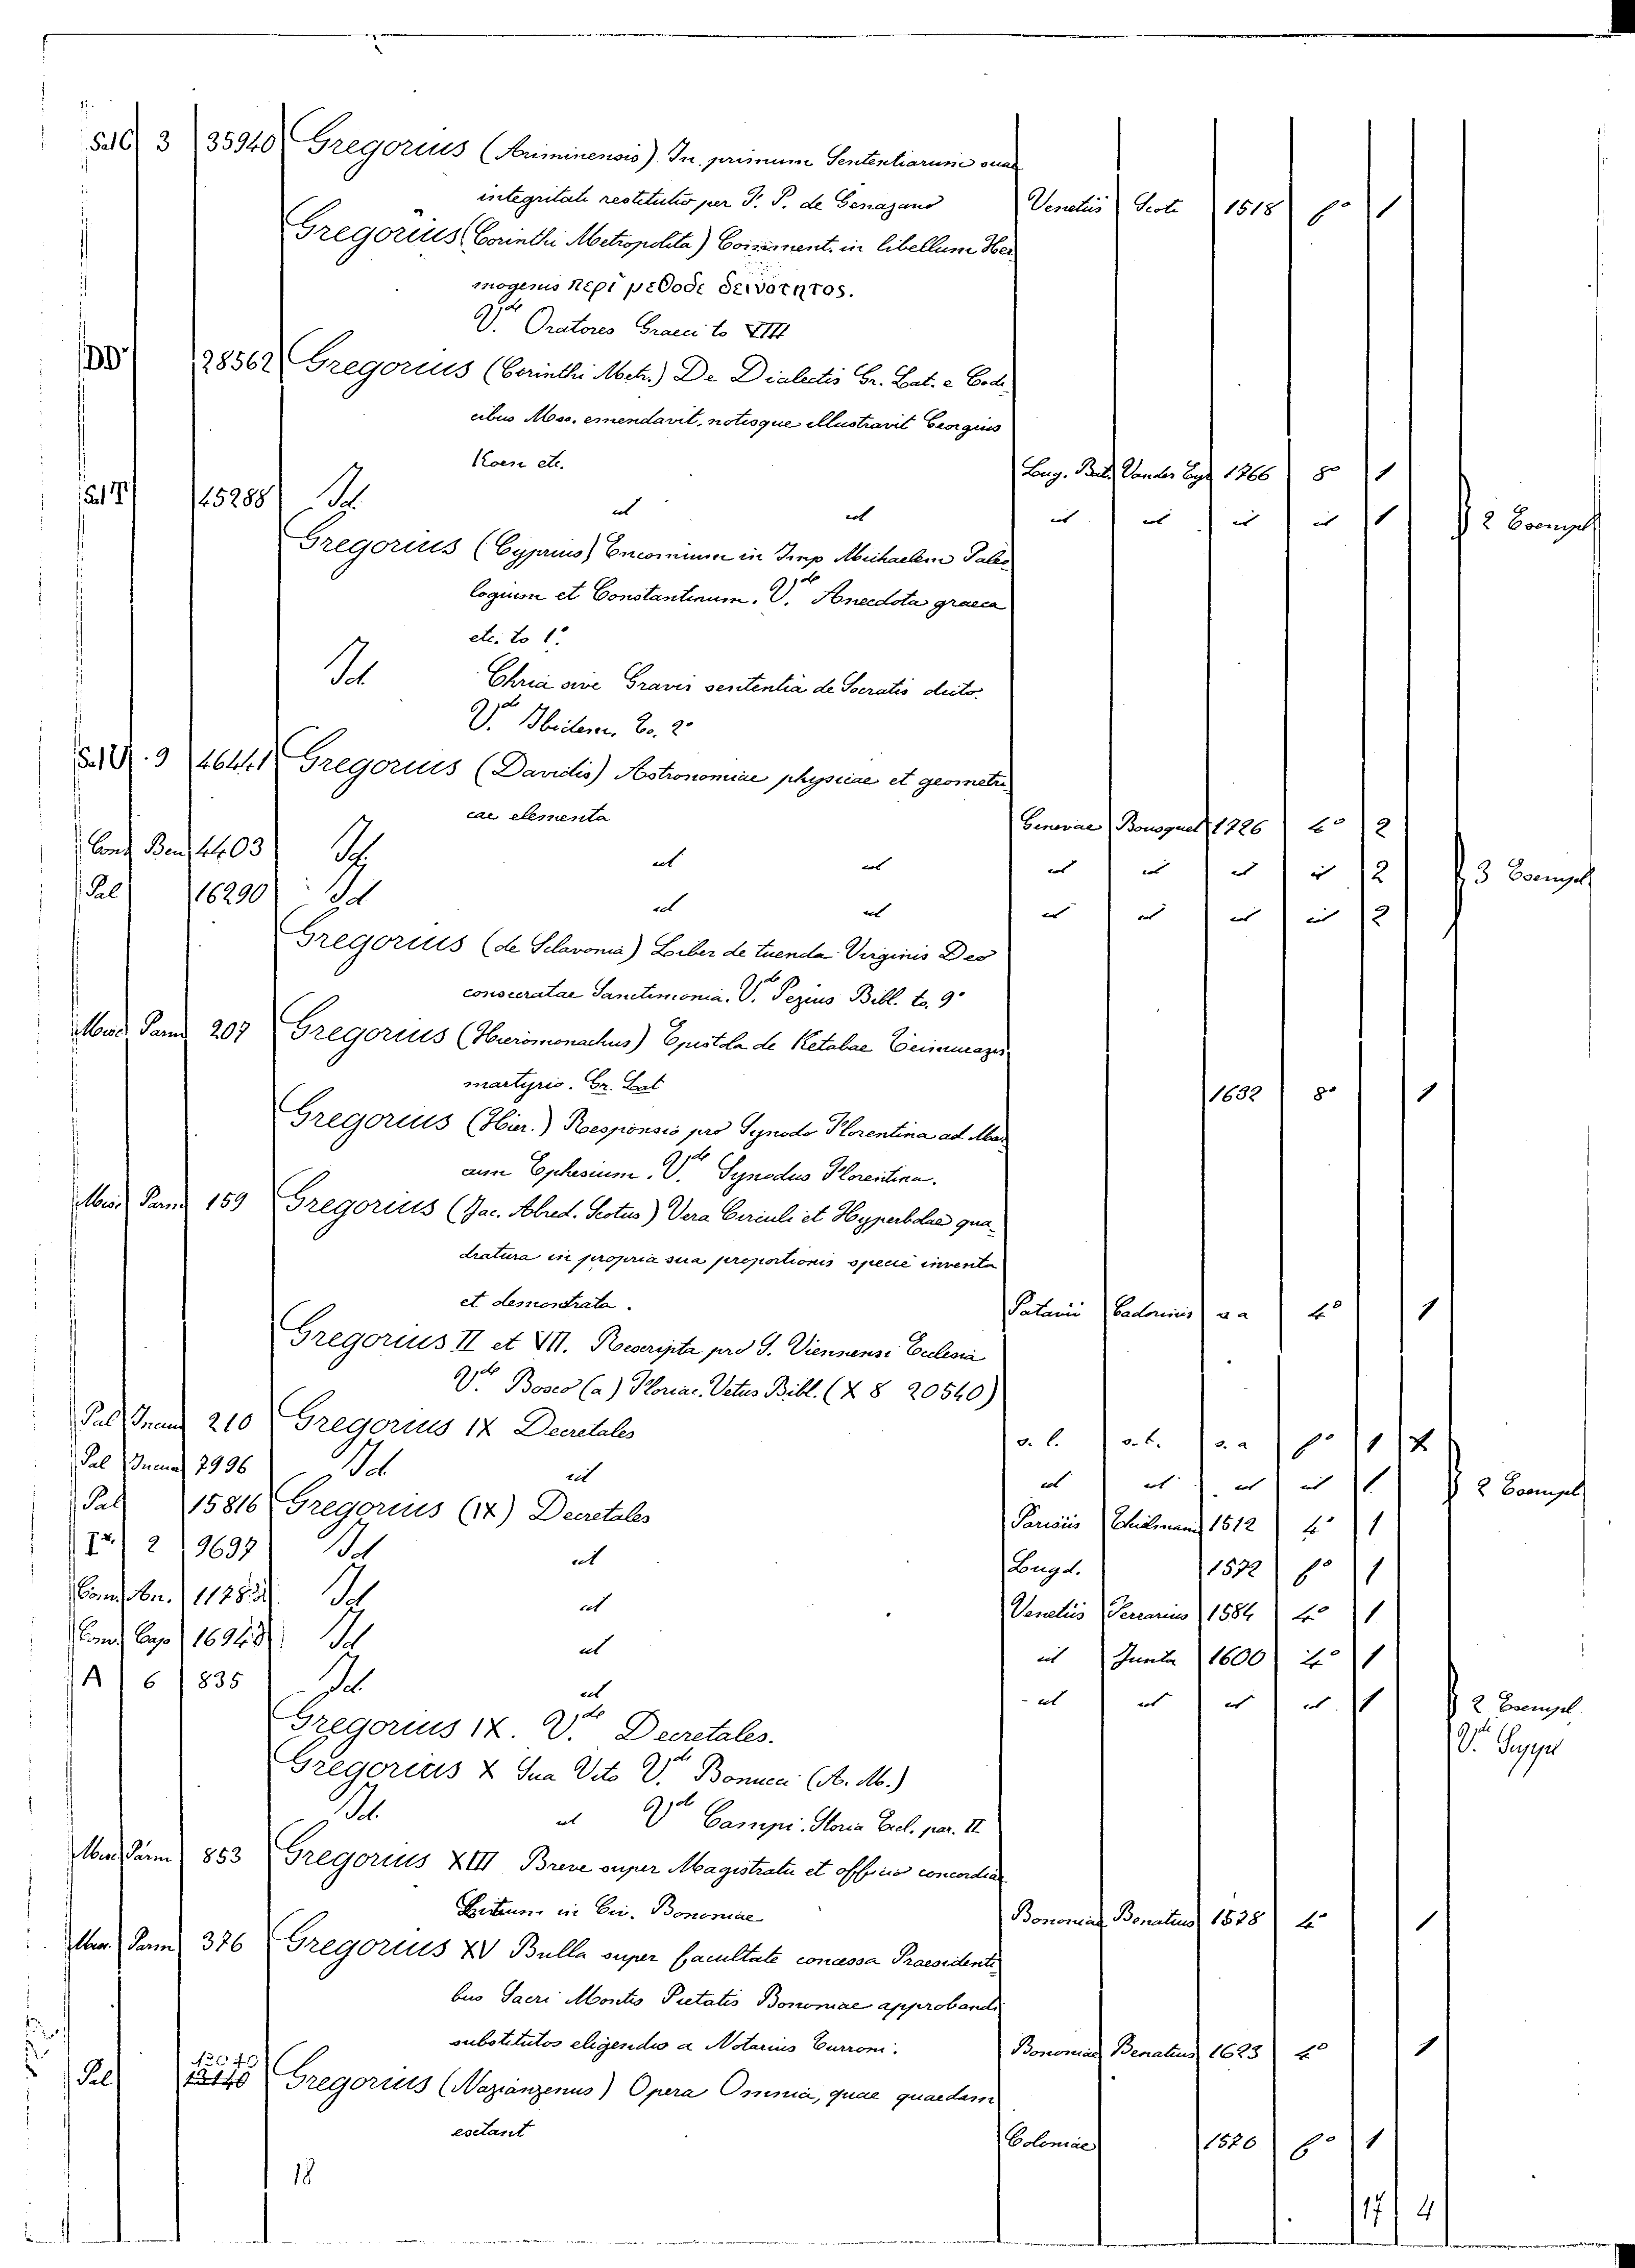 Sal C 3 35940 Gregorius (Ariminensis) In primum Sententiarum suae
integritati restitutis per P. P. de Genazano Venetiis Scoti 1518 fº 1
Gregorius (Corinthi Metropolita) Comment. in libellum Her
mogenis περι μεθοδε δεινοτητος.
Vde Oratores Graeci to VIII
DD 28562 Gregorius (Corinthi Metr.) De Dialectis Gr. Lat. e Codi
cibus Mss. emendavit, notisque illustravit Georgius
Koen etc. Lug. Bat. Vander Eyk 1766 8º 1
45288 Id. ut ut ut ut ut ut 1 2 Exempl
Gregorius (Cyprius) Encomium in Imp Michaelem Paleo
logum et Constantinum. Vde Anecdota graeca
etc. to 1º
Id Chria sive Gravis sententia de Socratis dicto.
Vde Ibidem, to. 2º
9 46441 Gregorius (Davidis) Astronomiae physicae et geometri
cae elementa Genevae Bousquet 1726 4º 2
Conv Ben 4403 Id ut ut ut ut ut ut 2 3 Exempl
Pal 16290 Id ut ut ut ut ut ut 2
Gregorius (de Sclavonia) Liber de tuenda Virginis Deo
consecratae Sanctimonia. Vde Pezius Bibl. to. 9º
Misc Parm 207 Gregorius (Hieromonachus) Epistola de Ketabae
martyrio. Gr. Lat 1632 8º 1
Gregorius (Hier.) Responsio pro Synodo Florentina ad Mar
cum Ephesium. Vde Synodus Florentina.
Misc Parm 159 Gregorius (Jac. Abred. Scotus) Vera Circuli et Hyperbolae qua
dratura in propria sua proportionis specie inventa
et demonstrata. Patavii Cadorinis s a 4º 1
Gregorius II et VII. Rescripta pro S. Viennensi Eclesia
Vde Bosco (a) Floriac. Vetus Bibl. (X 8 20540)
Pal Incun 210 Gregorius IX Decretales s. l. s. t. s. a fº 1 X
Pal Incun 7996 Id ut ut ut ut ut 1 2 Exempl
Pal 15816 Gregorius (IX) Decretales Parisiis 1512 4º 1
2 9697 Id ut Lugd. 1572 fº 1
Conv An. Id ut Venetiis 1584 4º 1
Conv Cap Id ut ut Junta 1600 4º 1
A 6 835 Id ut ut ut ut ut 1 2 Exempl
Gregorius IX. Vde Decretales. Vde Suppl
Gregorius X Sua Vita Vde Bonucci (A. M.)
Id. ut Vde Campi. Storia Eccl. par. II
Misc Parm 853 Gregorius XIII Breve super Magistratu et officio concordiae
in Civ. Bononiae Bononiae Benatius 1578 4º 1
Misc Parm 376 Gregorius XV Bulla super facultate concessa Praesidenti
bus Sacri Montis Pietatis Bononiae approbandi
substitutos eligendos a Notariis Bononiae Benatius 1623 4º 1
Pal Gregorius (Nazianzenus) Opera Omnia, quae quaedam
extant Coloniae 1570 fº 1
18
17 4